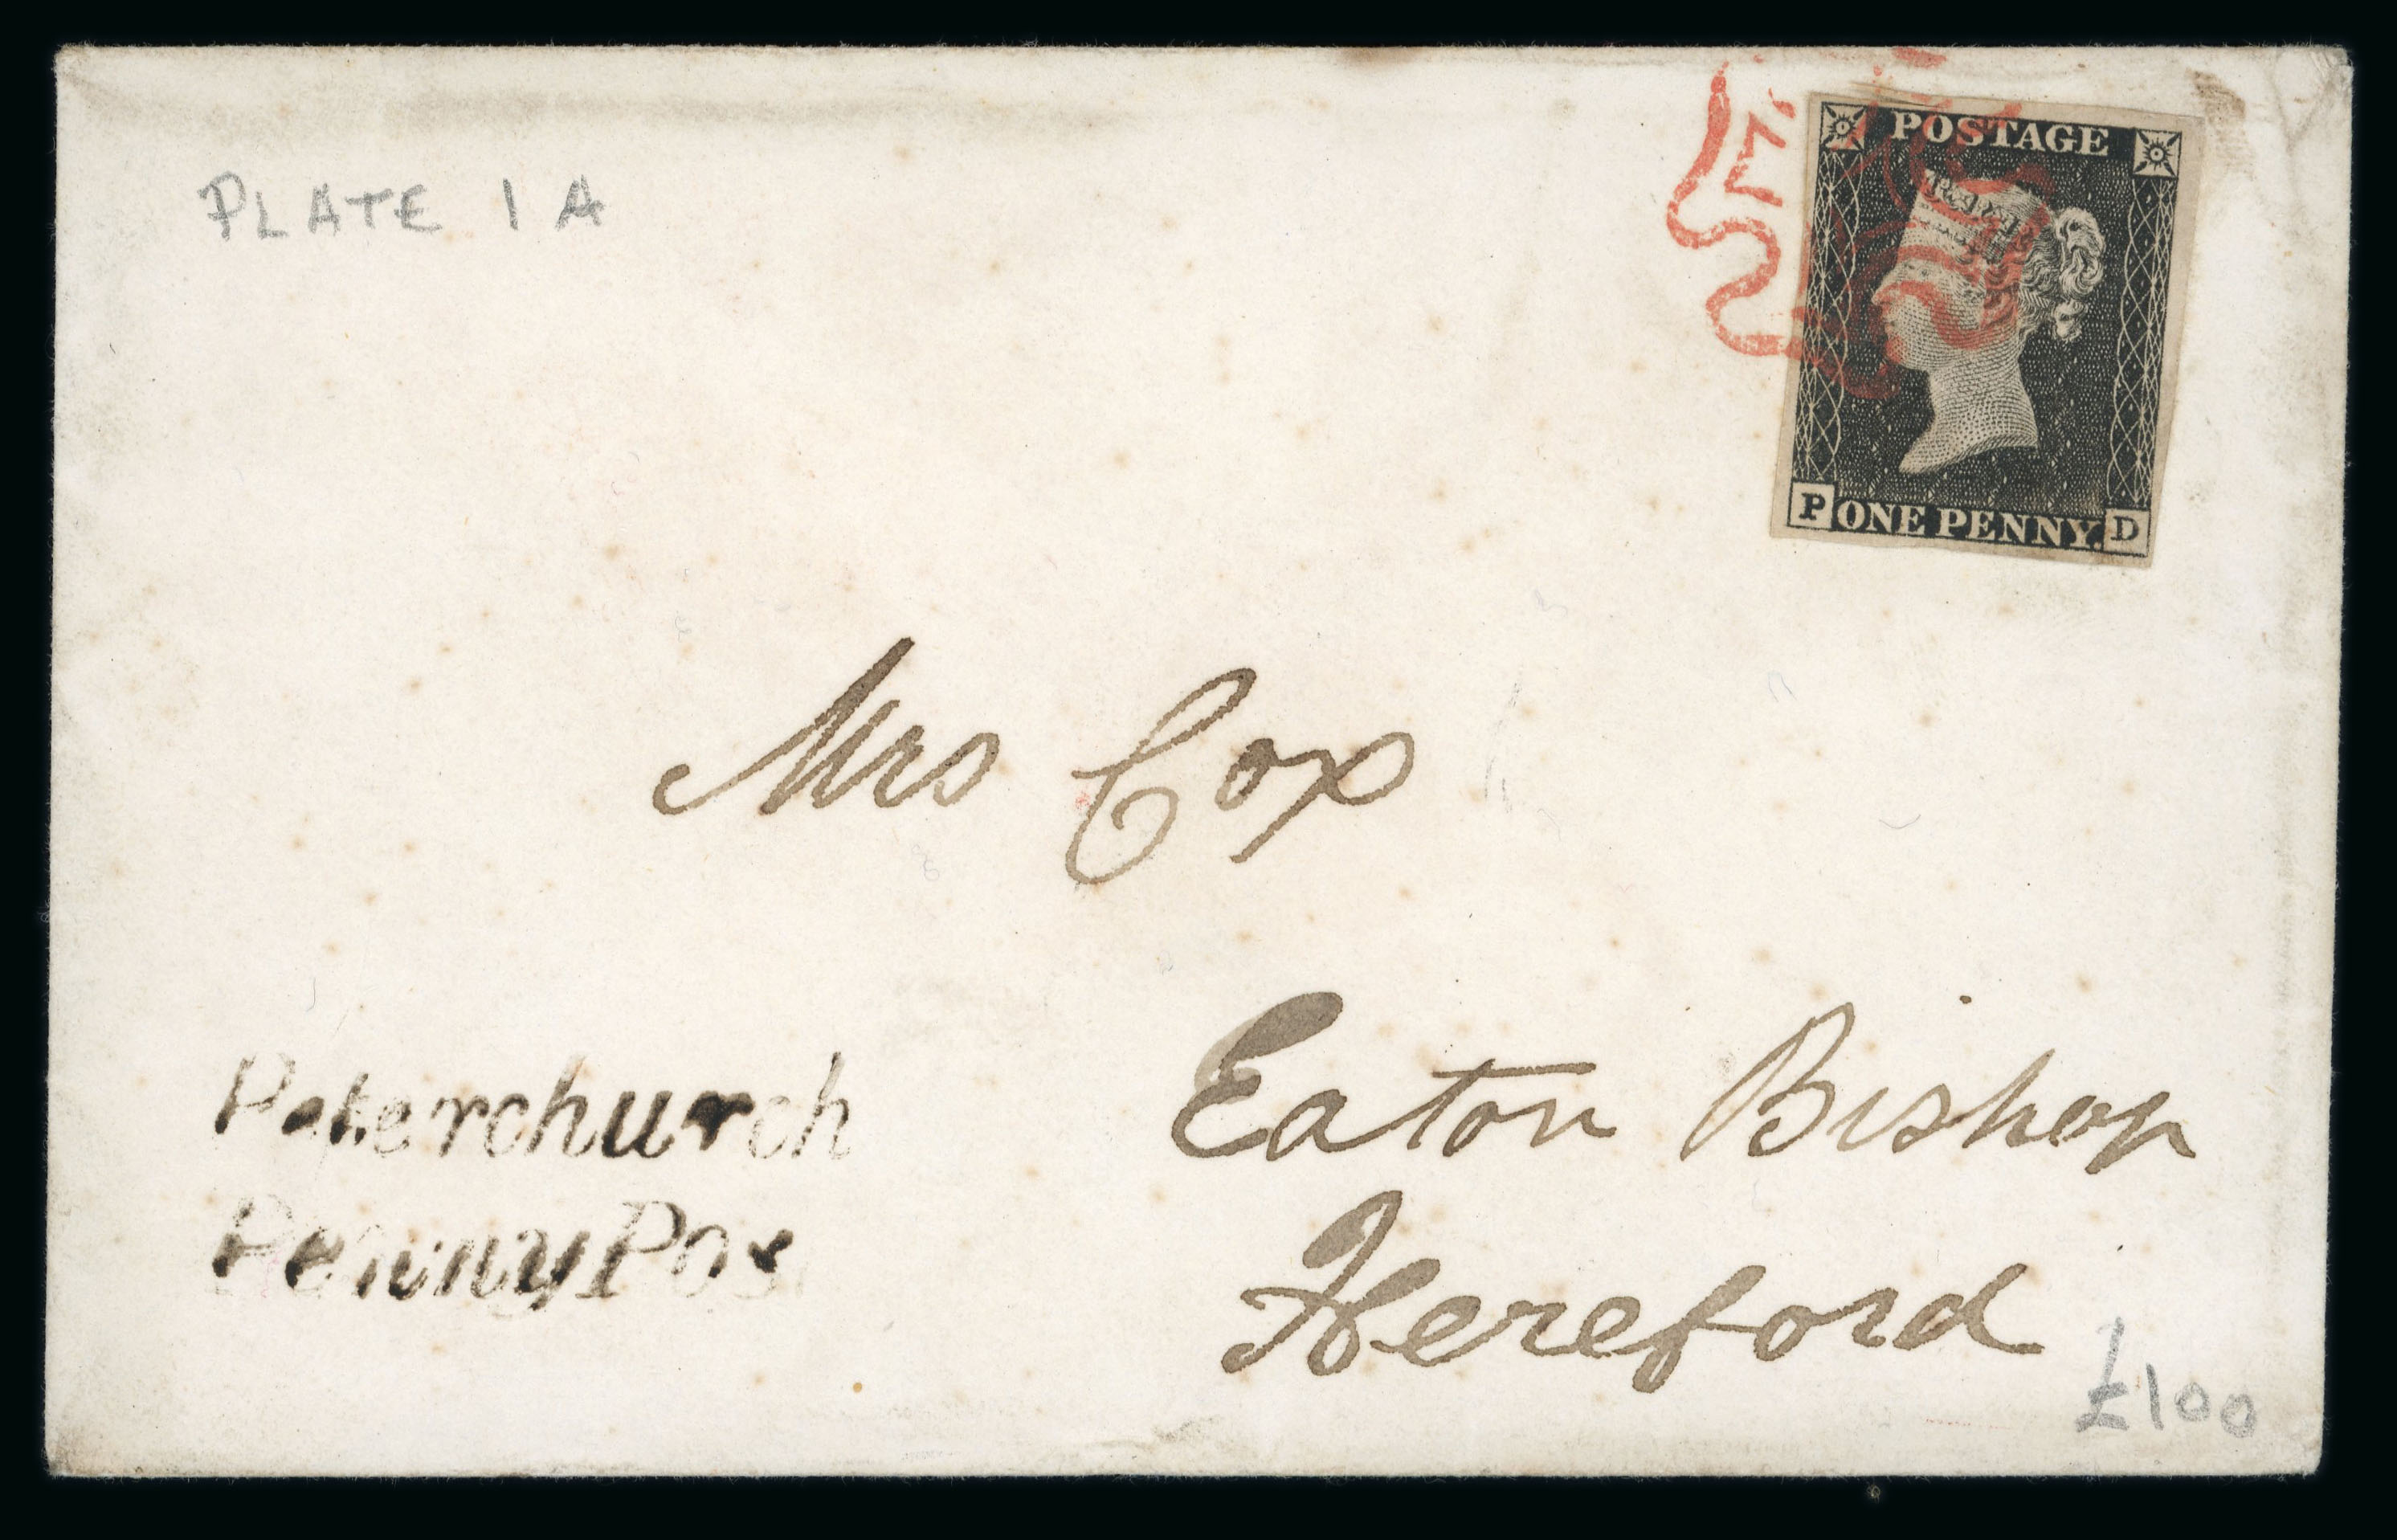 PLATE 1A
POSTAGE
P ONE PENNY. D
Mrs Cox
Eaton Bishop
Hereford
Peterchurch
Penny Pos
£100